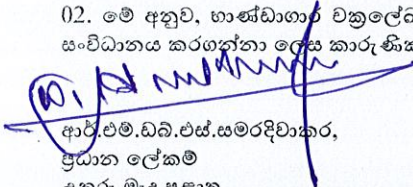 02. මේ අනුව, භාණ්ඩාගාර චක්‍රලේඛ
සංවිධානය කරගන්නා ලෙස කාරුණික
ආර්.එම්.ඩබ්.එස්.සමරදිවාකර,
ප්‍රධාන ලේකම්